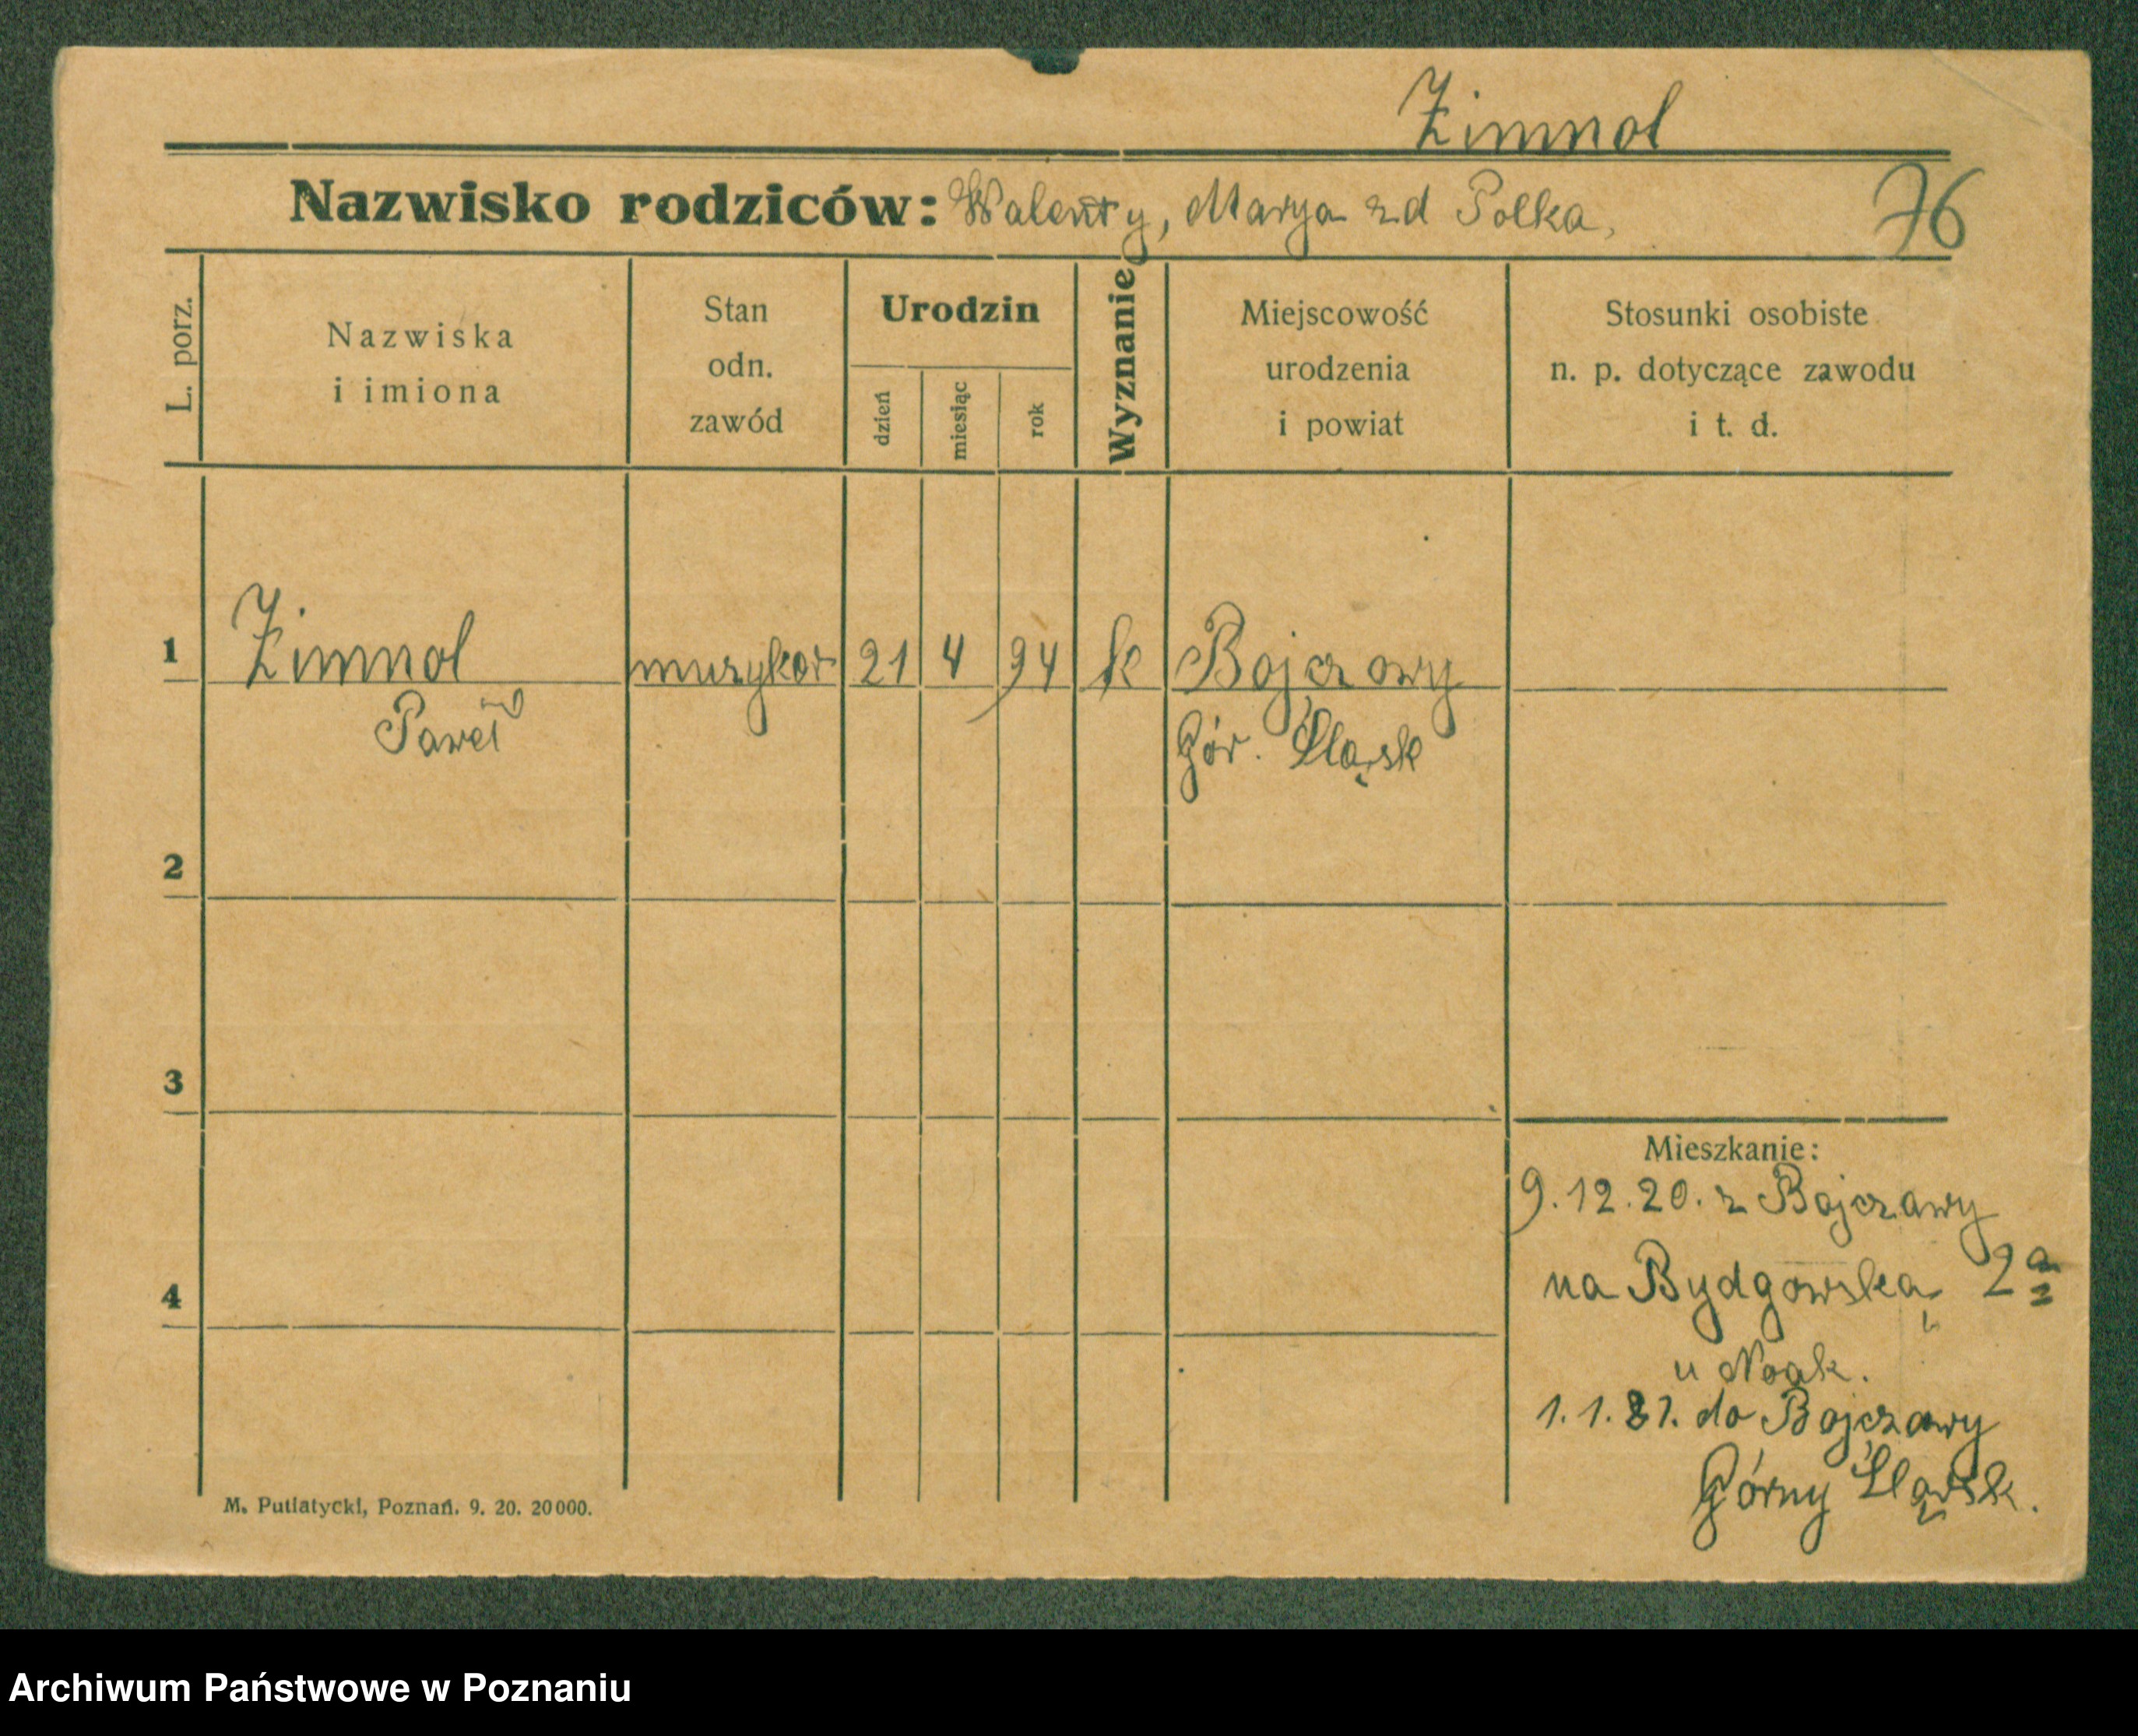 Zimnol
Nazwisko rodziców: Walenty, Marya zd Polka, 76
L. porz.
Nazwiska
i imiona
Stan
odn.
zawód
Urodzin
dzień
miesiąc
rok
Wyznanie
Miejscowość
urodzenia
i powiat
Stosunki osobiste
n. p. dotyczące zawodu
i t. d.
1 Zimnol muzykar 21 4 94 k Bojczowy
Paweł Gór. Śląsk
2
3
Mieszkanie:
9.12.20. z Bojczowy
4 na Bydgowską 2a
u Noak.
1.1.21. do Bojczowy
Górny Śląsk.
M. Putiatycki, Poznań. 9. 20. 20000.
Archiwum Państwowe w Poznaniu